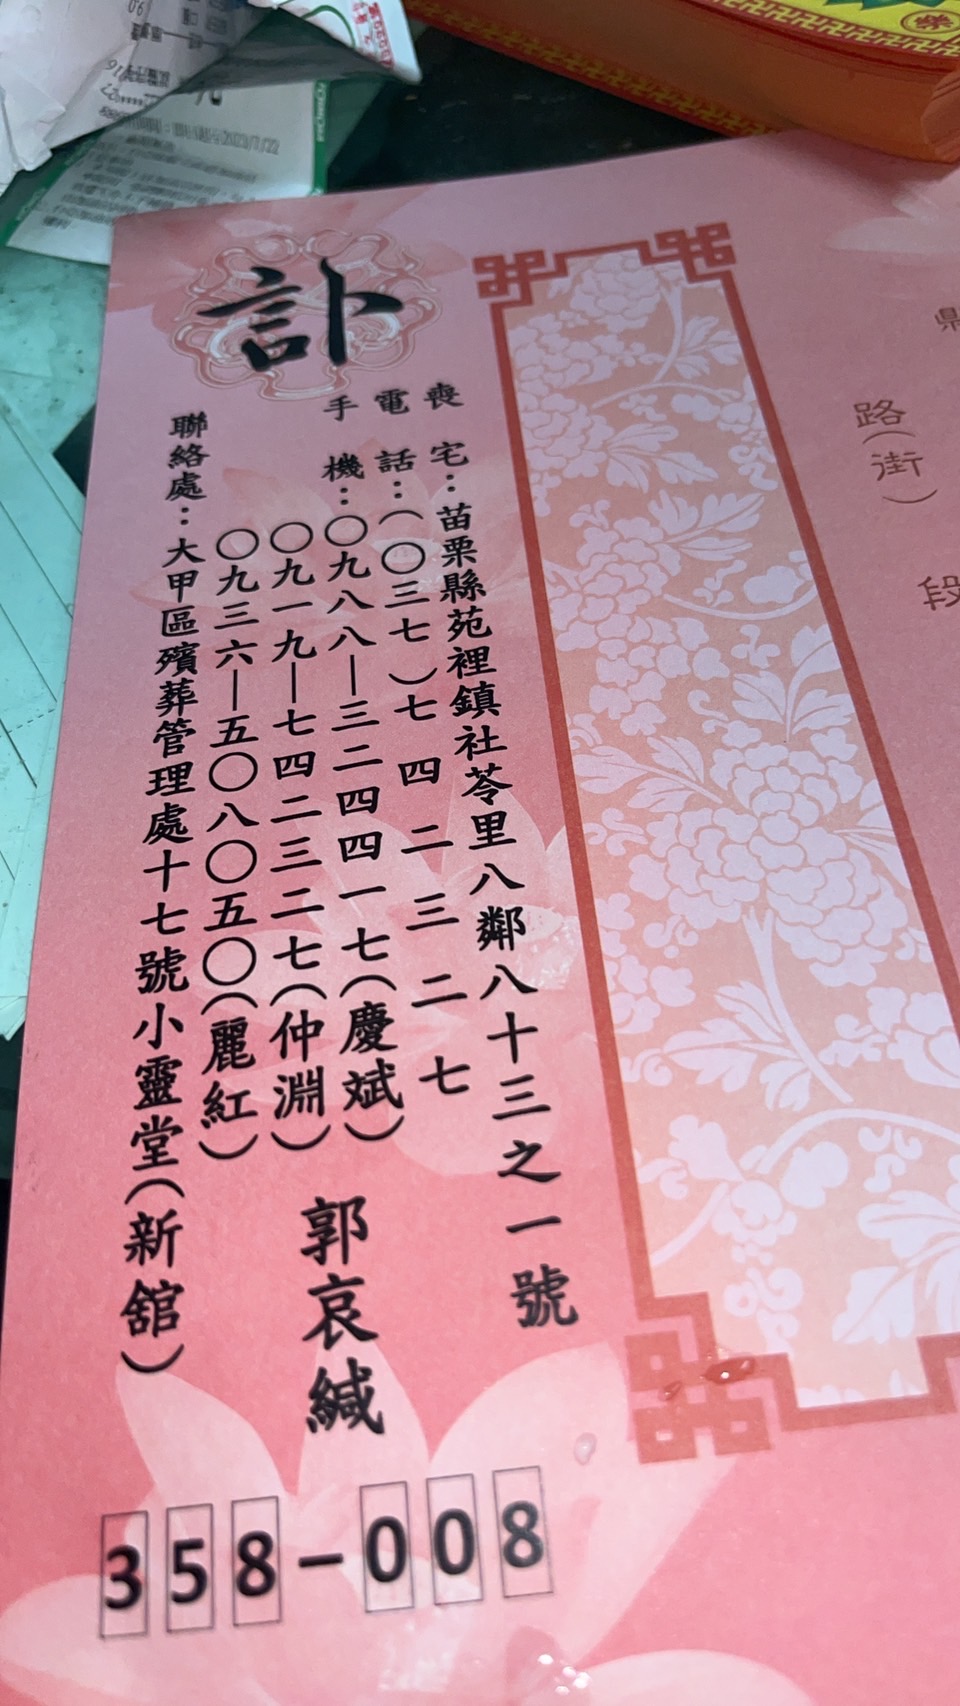 縣
路(街)
段
訃
喪宅:苗栗縣苑裡鎮社苓里八鄰八十三之一號
電話:(〇三七)七四二三二七
手機:〇九八八—三二四四一七(慶斌)
〇九一九—七四二三二七(仲淵)
〇九三六—五〇八〇五〇(麗紅)
郭哀緘
聯絡處:大甲區殯葬管理處十七號小靈堂(新舘)
358-008